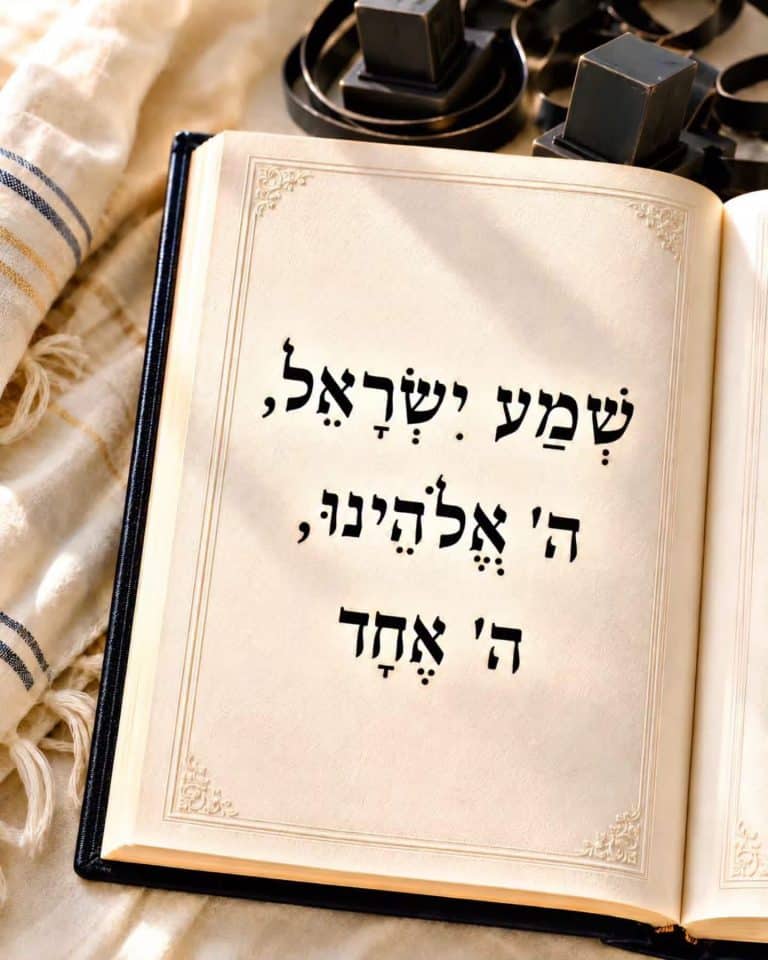 שְׁמַע יִשְׂרָאֵל,
ה' אֱלֹהֵינוּ,
ה' אֶחָד